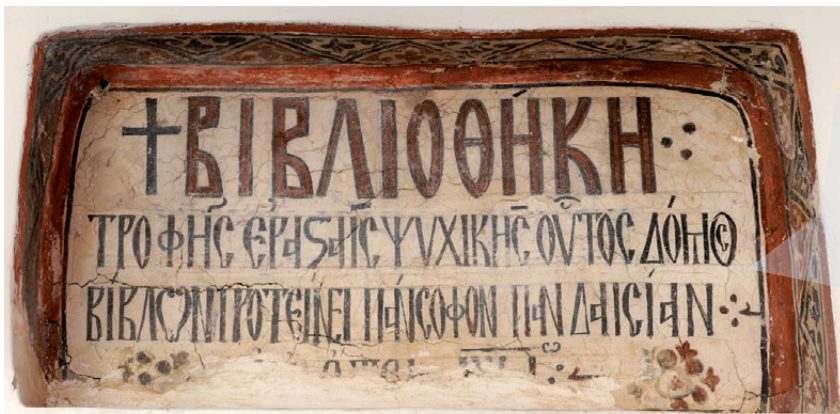 † ΒΙΒΛΙΟΘΗΚΗ
ΤΡΟΦΗ͂C ἘΡαϚαῖC ΨΥΧΙΚΗ͂C ΟΥ͂ΤΟC ΔΌΜΟC
ΒΙΒΛΩΝ ΠΡΟΤΕΊΝΕΙ ΠάΝCΟΦΟΝ ΠαΝΔαΙCΊΑΝ